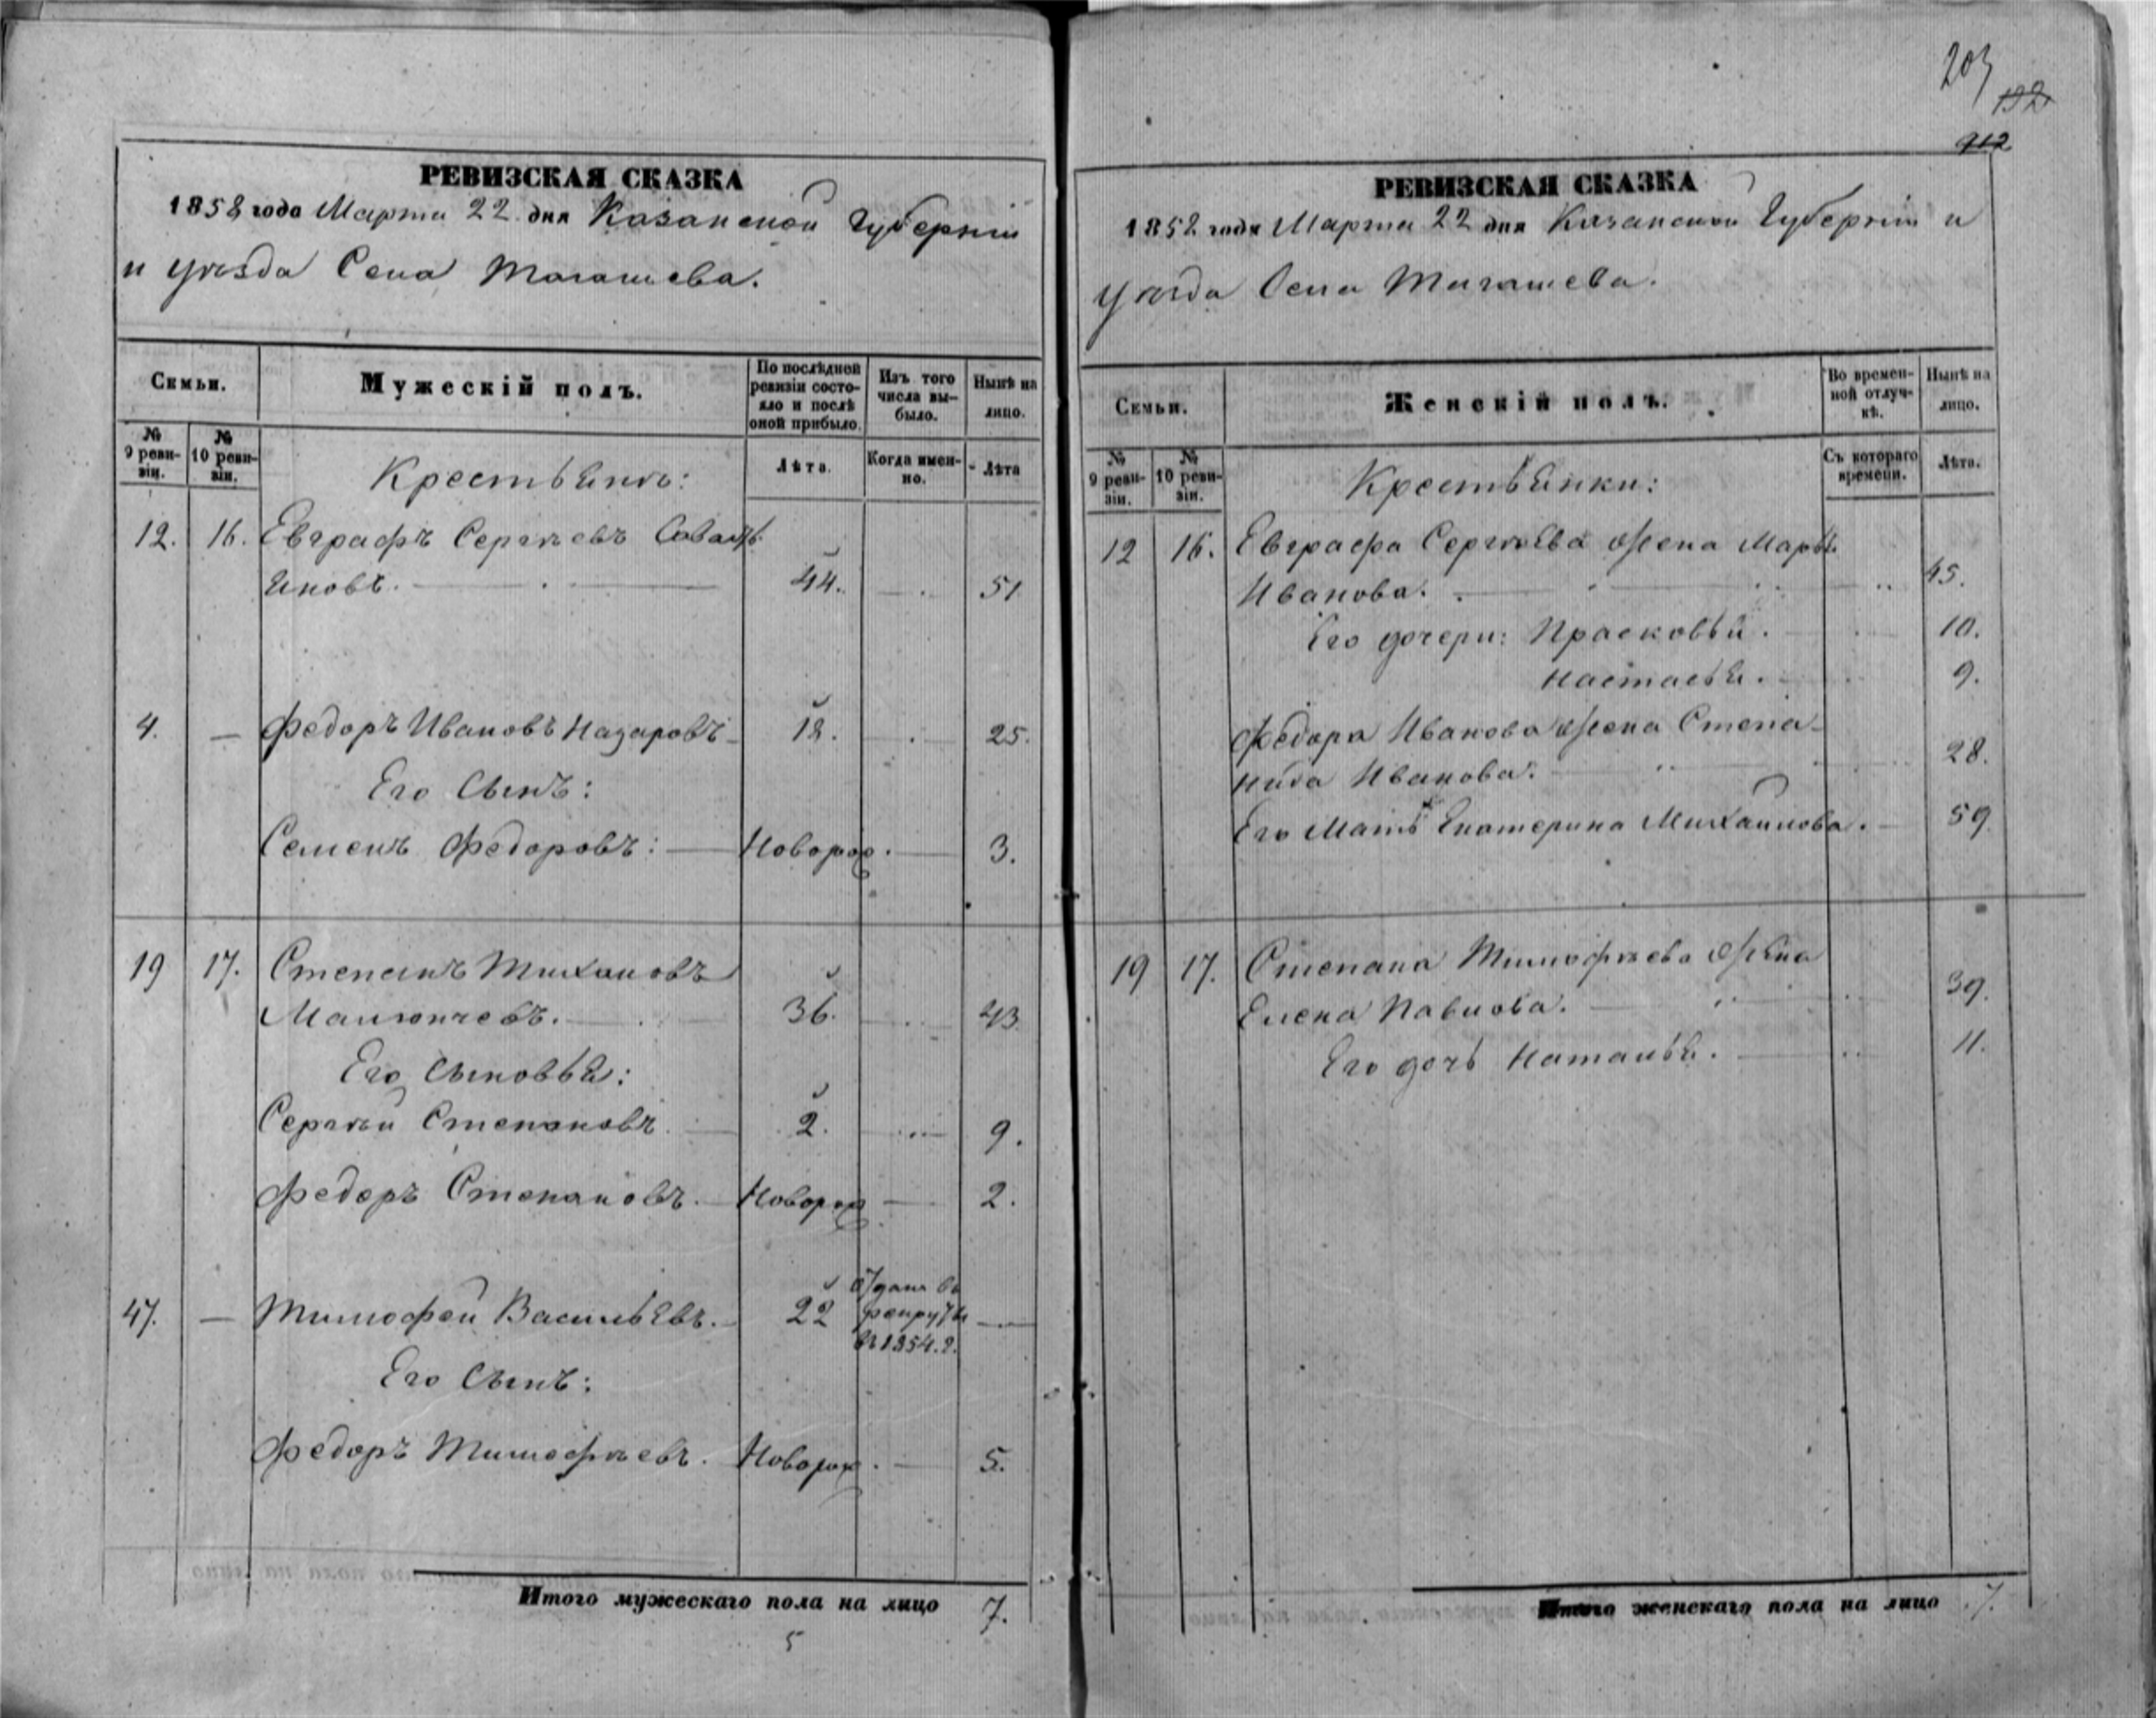 203
192
912
РЕВИЗСКАЯ СКАЗКА
1858 года Марта 22 дня Казанской Губернiи
и уѣзда Села Тагашева.
Семьи.
Мужескiй полъ.
По послѣдней ревизiи состояло и послѣ оной прибыло.
Изъ того числа выбыло.
Нынѣ на лицо.
№ 9 ревизiи.
№ 10 ревизiи.
Крестьянъ:
Лѣта.
Когда именно.
Лѣта
12. 16. Евграфъ Сергѣевъ
иновъ. 44. 51
4. — Федоръ Ивановъ Назаровъ 18. 25.
Его Сынъ:
Семенъ Федоровъ: — Новорож. — 3.
19 17. Степанъ
36. 43
Его Сыновья:
Сергѣй Степановъ. 2. 9.
Федоръ Степановъ. — Новорож — 2.
47. — Тимофей Васильевъ. 22 Отданъ въ рекруты въ 1854. г. —
Его Сынъ:
Федоръ Тимофѣевъ. Новорож. — 5.
Итого мужескаго пола на лицо 7.
5
РЕВИЗСКАЯ СКАЗКА
1858 года Марта 22 дня Казанской Губернiи и
уѣзда Села Тагашева.
Семьи.
Женскiй полъ.
Во временной отлучкѣ.
Нынѣ на лицо.
№ 9 ревизiи.
№ 10 ревизiи.
Крестьянки:
Съ котораго времени.
Лѣта.
12 16. Евграфа Сергѣева жена Марья
Иванова. 45.
Его дочери: Прасковья. 10.
Настасья. 9.
Федора Иванова жена Степа-
нида Иванова. 28.
Его Мать Екатерина Михайлова. — 59
19 17. Степана Тимофѣева жена
Елена Павлова. 39.
Его дочь Наталья. 11.
Итого женскаго пола на лицо 7.